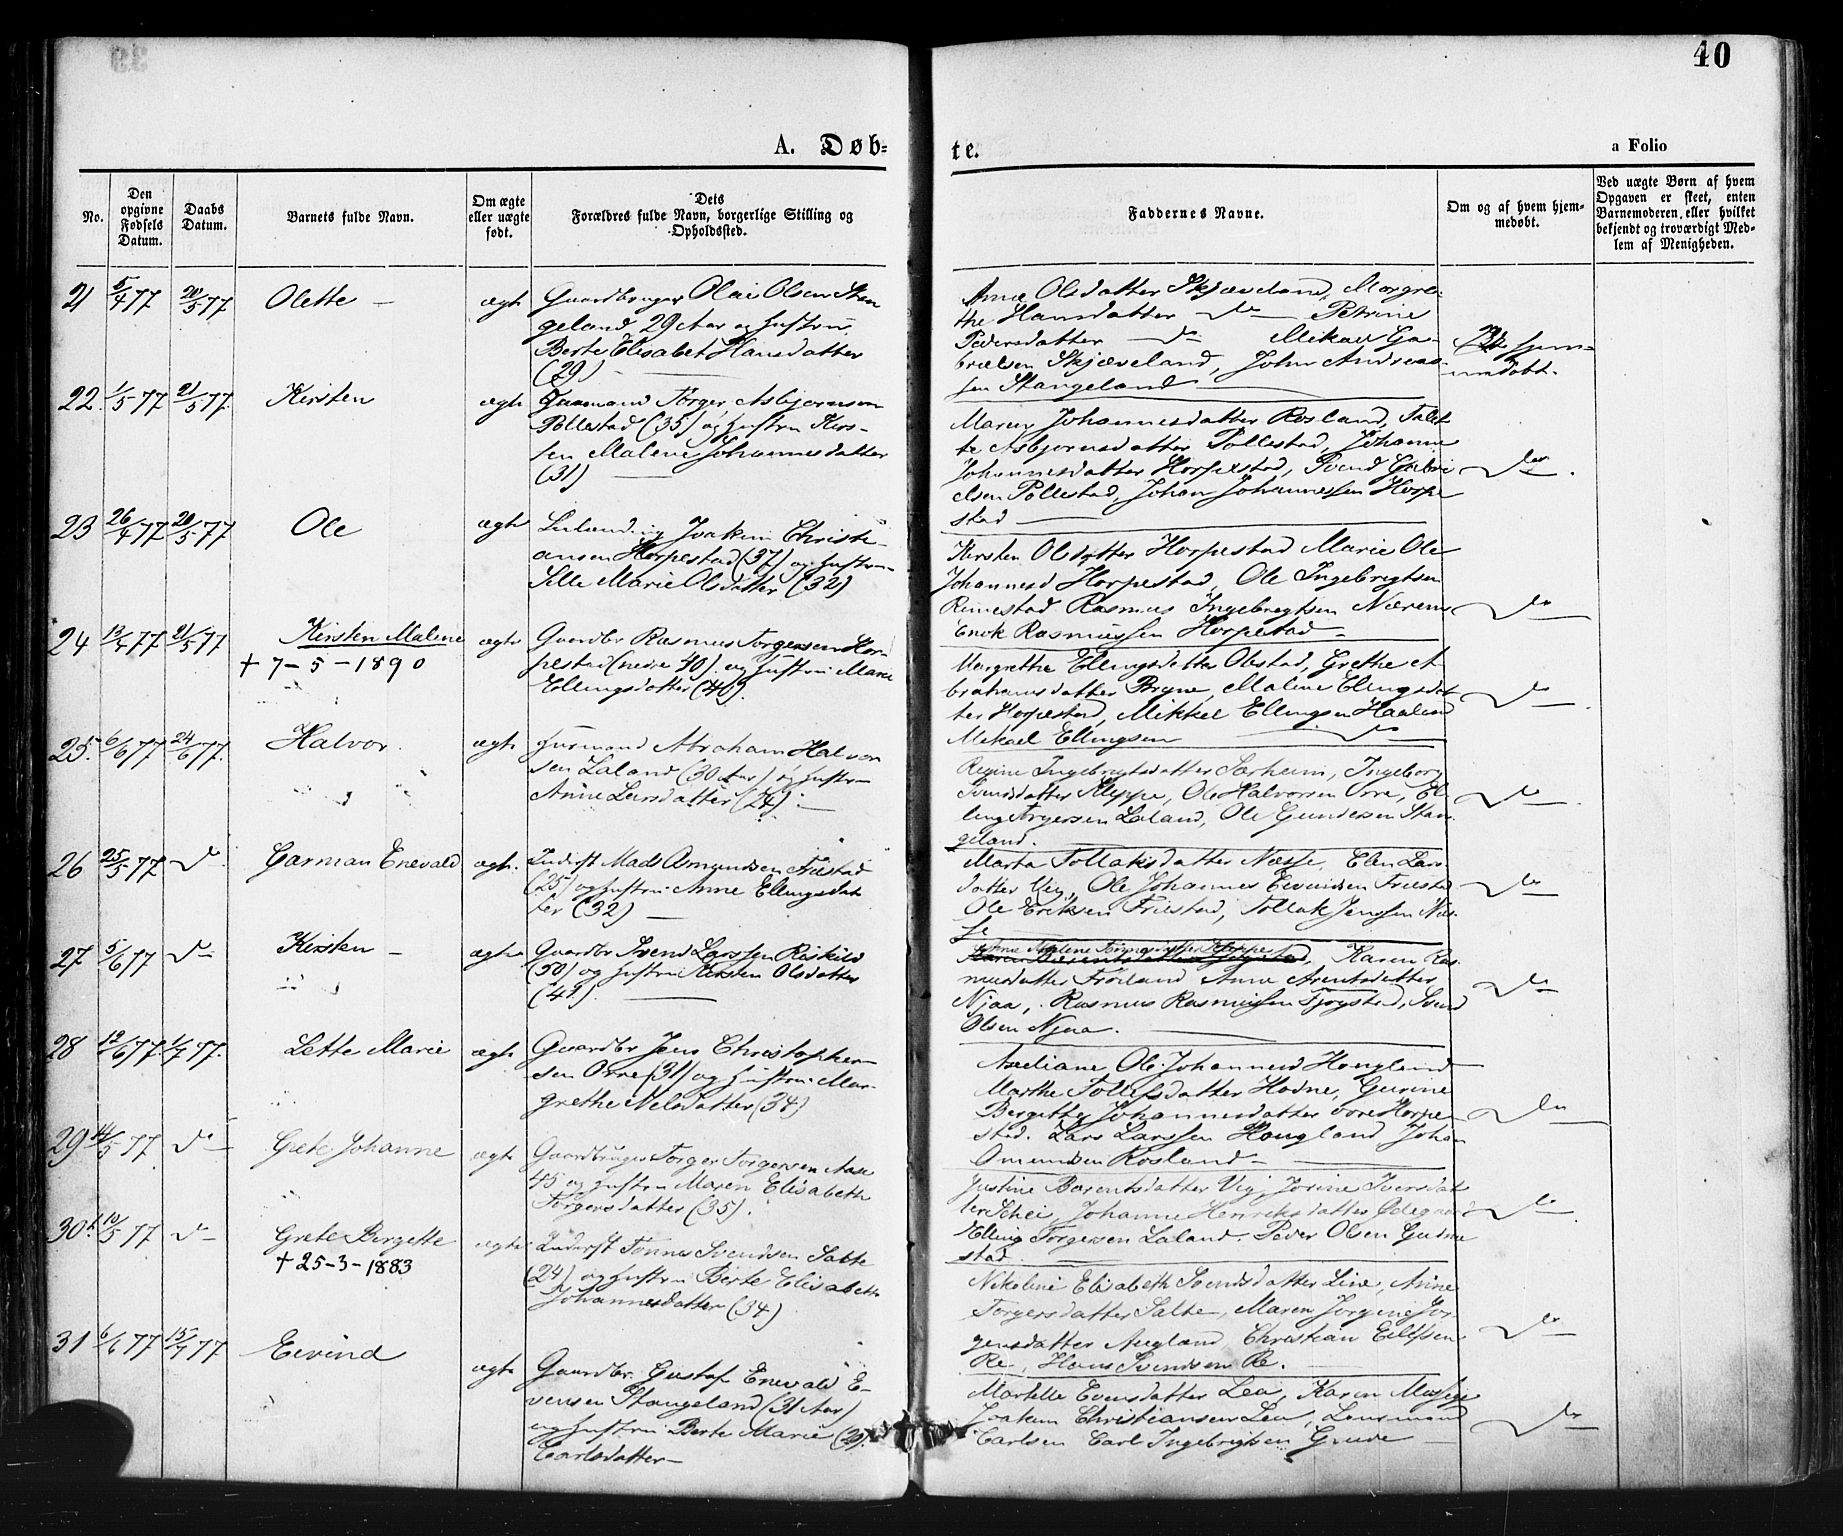 40
A. Døb-
te.
a Folio
No.
Den opgivne Fødsels Datum.
Daabs Datum.
Barnets fulde Navn.
Om ægte eller uægte født.
Dets
Forældres fulde Navn, borgerlige Stilling og
Opholdssted.
Faddernes Navne.
Om og af hvem hjem-
medøbt.
Ved uægte Børn af hvem
Opgaven er skeet, enten
Barnemoderen eller hvilket
bekjendt og troværdigt Med-
lem af Menigheden.
21 5/4 77 20/5 77 Olette – ægte Gaardbruger Olai Olsen Stan
geland 29 Aar og Hustru
Berte Elisabet Hansdatter
(29)
Anne Olsdatter Skjæveland, Margre-
the Hansdatter do Petrine
Pedersdatter do Mikael Ga-
brielsen Skjæveland, John Andreas-
sen Stangeland
Ikke hjem-
medøbt.
22. 1/5 77 21/5 77. Kirsten ægte Gaamand Torger Asbjørnsen
Pollestad (35) og Hustru Kirs-
ten Malene Johannesdatter
(31)
Maren Johannesdatter Rosland, Talet-
te Asbjørnsdatter Pollestad, Johanne
Johannesdatter Horpestad, Svend Gabri
elsen Pollestad, Johan Johannessen Horpe
stad
do
23 26/4 77 20/5 77 Ole ægte Joakim Christi-
ansen Horpestad (37) og Hustru
Sille Marie Olsdatter (32)
Kirsten Olsdatter Horpestad Marie Ole
Johannesd Horpestad, Ole Ingebregtsen
Rimestad Rasmus Ingebregtsen Nærem
Enok Rasmussen Horpestad
do
24 13/4 77 21/5 77 Kirsten Malene ægte Gaardbr Rasmus Torgersen Hor
† 7-5-1890
pestad (nedre 40) og Hustru Marie
Ellingsdatter (40).
Margrethe Ellingsdatter Obstad, Grethe A-
brahamsdatter Bryne, Malene Ellingsdat
ter Horpestad, Mikkel Ellingsen Haaland
Mikael Ellingsen do
do
25. 6/6 77 24/6 77. Halvor. ægte Husmand Abraham Halvor
sen Laland (30 Aar) og Hustru
Anne Larsdatter (24)
Regine Ingebregtsdatter Særheim, Ingeborg
Svensdatter Kleppe, Ole Halvorsen Orre, El-
ling Torgersen Laland, Ole Gundersen Stan-
geland.
do
26 25/5 77 do Garman Enevald ægte. Inderst Mads Asmundsen Friestad
(25) og Hustru Anne Ellingsdat
ter (32)
Marta Tollaksdatter Næsse, Elen Lars
datter Vig, Ole Johannes Eivindsen Friestad
Ole Eriksen Friestad, Tollak Jenssen Næs-
se
do
27 5/6 77 do Kirsten – ægte Gaardbr Svend Larssen Riskild
(50) og Hustru Kirsten Olsdatter
(41)
Ane Malene Tønnesdatter Horpestad
Karen Ras-
musdatter Frøiland Anna Arentsdatter
Njaa, Rasmus Rasmussen Tjøgstad, Svend
Olsen Njaa.
do
28 12/6 77 1/7 77. Lette Marie ægte Gaardbr Jens Christopher-
sen Orre (31) og Hustru Mar-
grethe Nelsdatter (34)
Axeliane Ole Johannesd Hougland
Marthe Tollefsdatter Hodne, Gurine
Bergitte Johannesdatter øvre Horpe-
stad. Lars Larssen Hougland, Johan
Omundsen Rosland
do
29 14/5 77 do Grete Johanne ægte Gaardbruger Torger Torgersen Aase
45 og Hustru Maren Elisabeth
Torgersdatter (35).
Justine Barentsdatter Vig, Jorine Iversdat
ter Skei, Johanne Henriksdatter Ødegaard
Elling Torgersen Laland. Peder Olsen Gudme
stad
do
30. 10/5 77 do Grete Bergette ægte Inderst Tønnes Svendsen Salte
† 25-3-1883
(24) og Hustru Berte Elisabeth
Johannesdatter (34)
Nikoline Elisabeth Svendsdatter Line, Anne
Torgersdatter Salte, Maren Jørgine Jør-
gensdatter Augland, Christian Eilefsen
Re, Hans Svendsen Re.
do
31 6/6 77 15/7 77 Eivind ægte Gaardbr. Gustaf Enevald E-
vensen Stangeland (31 Aar)
og Hustru Berte Marie (29).
Carlsdatter
Martelle Evensdatter Lea, Karen
Joakim Christiansen Lea, Lensmand
Carlsen Carl Ingebrigtsen Grude
do